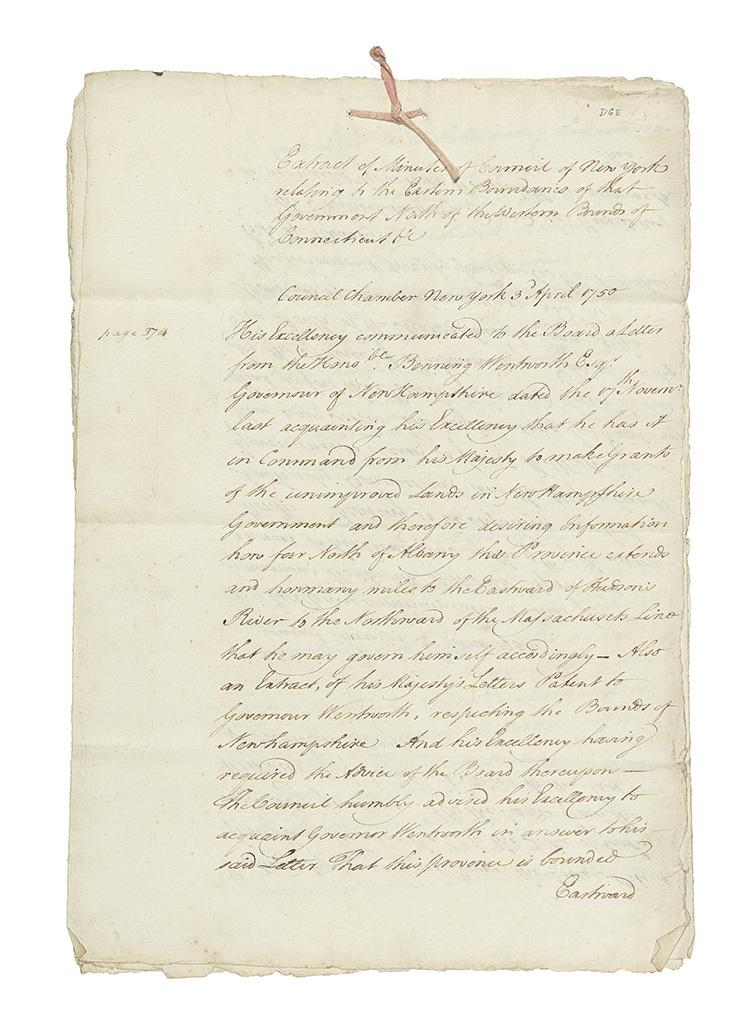 DGE
Extract of Minutes of Council of New York
relating to the Eastern Boundaries of that
Government North of the Western Bounds of
Connecticut &c
Council Chamber New York 3d April 1750
page 374
His Excellency communicated to the Board a Letter
from the Honoble. Benning Wentworth Esqr.
Governour of New Hampshire dated the 17th Novemr.
last acquainting his Excellency that he has it
in Command from his Majesty to make Grants
of the unimproved Lands in New Hampshire
Government and therefore desiring Information
how far North of Albany this Province extends
and how many miles to the Eastward of Hudson's
River to the Northward of the Massachusets Line
that he may govern himself accordingly — Also
an Extract, of his Majesty's Letters Patent to
Governour Wentworth, respecting the Bounds of
Newhampshire And his Excellency having
required the Advice of the Board thereupon —
The Council humbly advised his Excellency to
acquaint Governor Wentworth in answer to his
said Letter That this province is bounded
Eastward